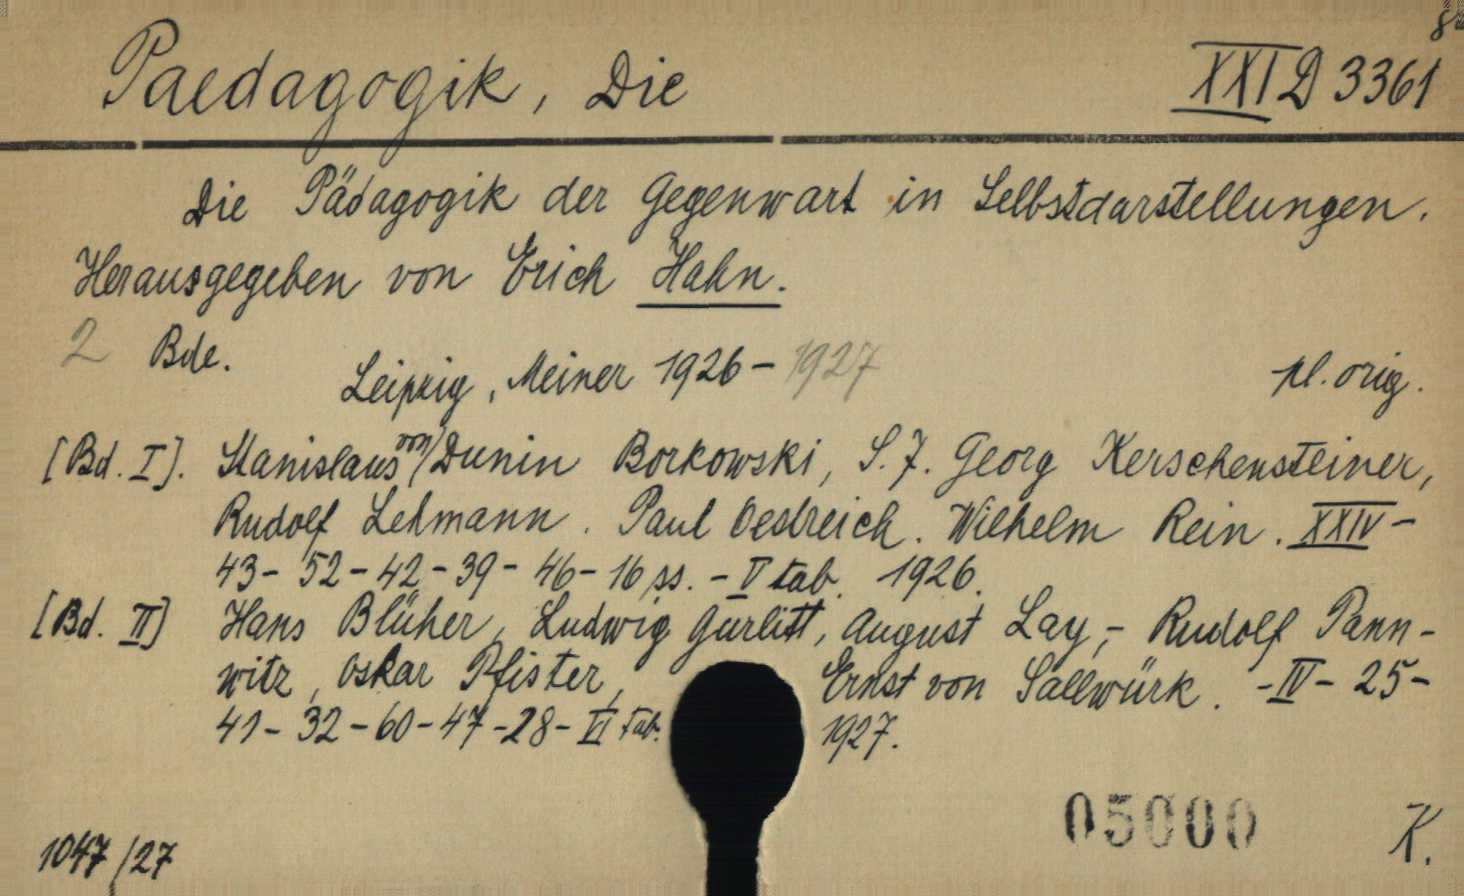 Paedagogik, Die XXI D 3361
Die Pädagogik der Gegenwart in Selbstdarstellungen.
Herausgegeben von Erich Hahn.
2 Bde. Leipzig, Meiner 1926-1927 pl. orig.
[Bd. I]. Stanislaus von Dunin Borkowski, S. J. Georg Kerschensteiner,
Rudolf Lehmann. Paul Oestreich. Wilhelm Rein. XXIV-
43- 52- 42- 39- 46- 16 ss. - V tab. 1926.
[Bd. II] Hans Blüher, Ludwig Gurlitt, August Lay, - Rudolf Pann-
witz, Oskar Pfister, Ernst von Sallwürk. -IV- 25-
41- 32- 60- 47- 28- VI tab. 1927.
05000 K.
1047/27